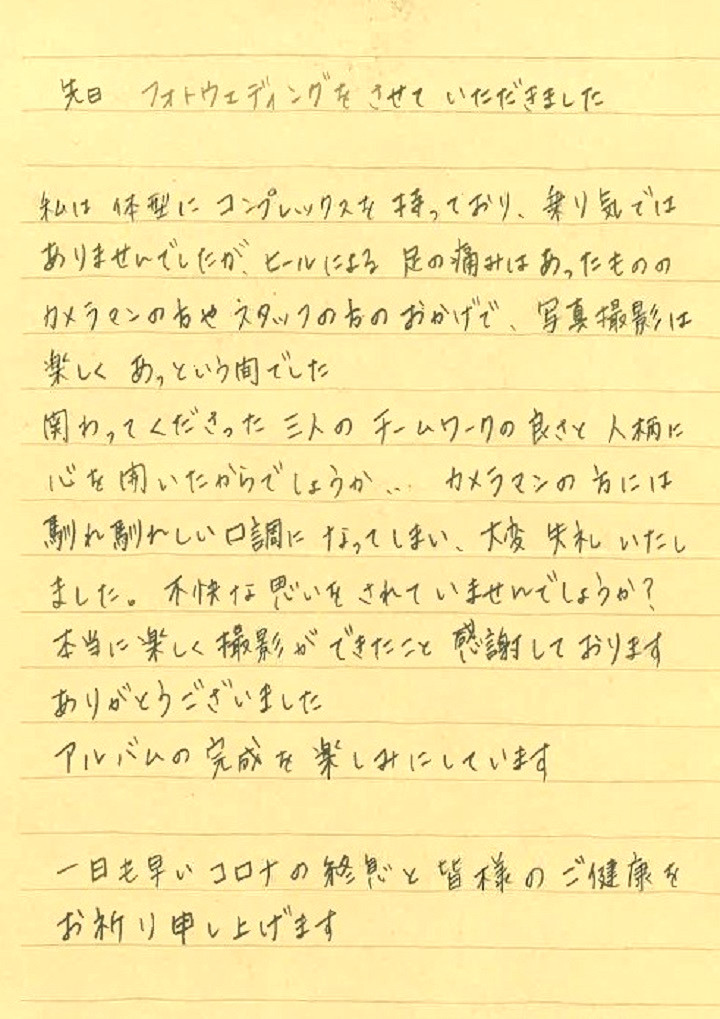 先日 フォトウェディングをさせていただきました
私は体型にコンプレックスを持っており、乗り気では
ありませんでしたが、ヒールによる足の痛みはあったものの
カメラマンの方やスタッフの方のおかげで、写真撮影は
楽しくあっという間でした
関わってくださった三人のチームワークの良さと人柄に
心を開いたからでしょうか... カメラマンの方には
馴れ馴れしい口調になってしまい、大変失礼いたし
ました。不快な思いをされていませんでしょうか?
本当に楽しく撮影ができたこと感謝しております
ありがとうございました
アルバムの完成を楽しみにしています
一日も早いコロナの終息と皆様のご健康を
お祈り申し上げます